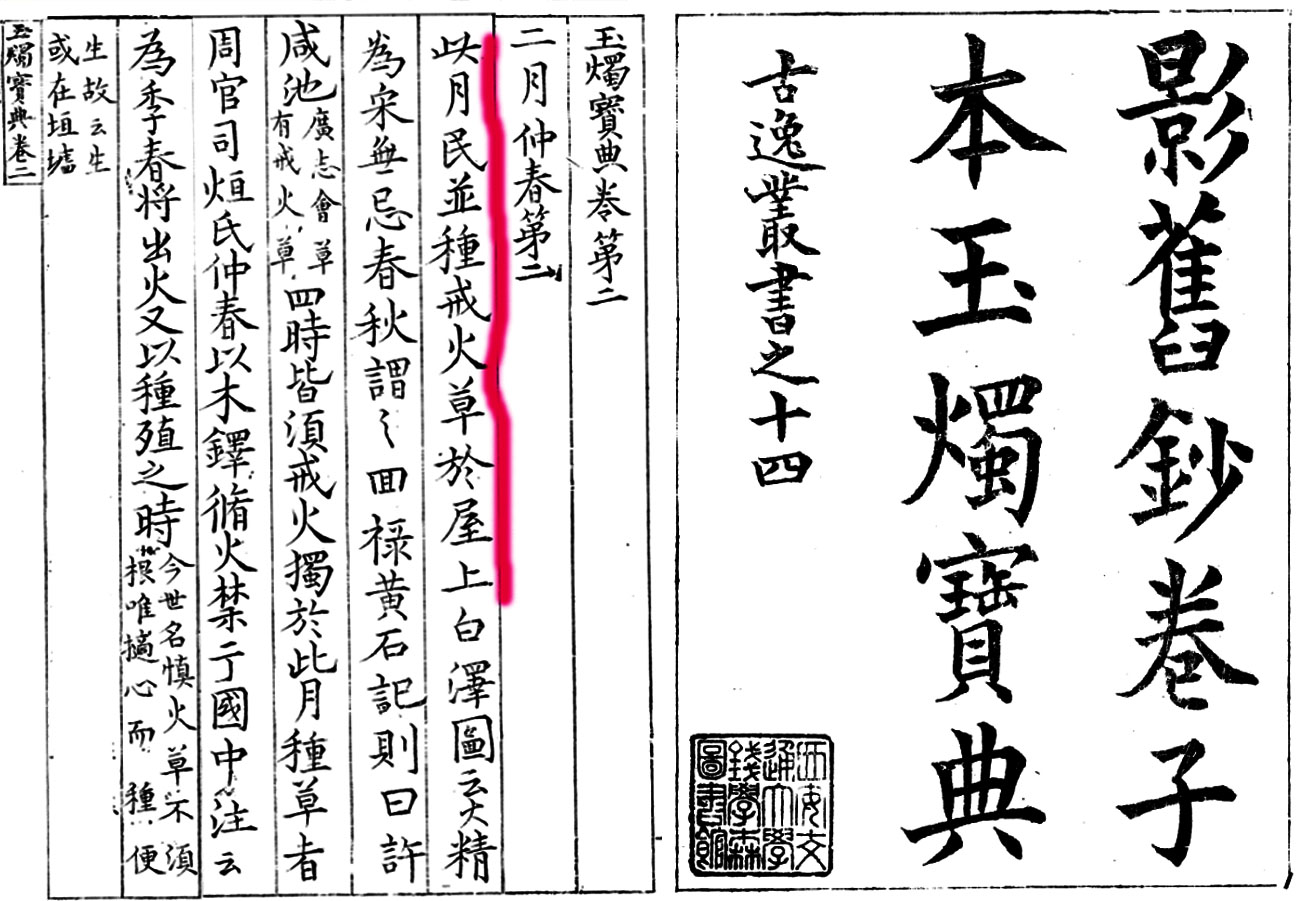 影舊鈔卷子
本玉燭寶典
古逸叢書之十四
西安交
通大學
錢學森
圖書館
玉燭寶典卷第二
二月仲春第二
此月民並種戒火草於屋上白澤圖云火精
為宋無忌春秋謂〻囬禄黄石記則曰許
咸池廣志會草有戒火草四時皆須戒火獨於此月種草者
周官司烜氏仲春以木鐸脩火禁于國中注云
為季春将出火又以種殖之時今世名慎火草不須根唯擿心而種便
生故云生
或在垣墟
玉燭寶典卷二